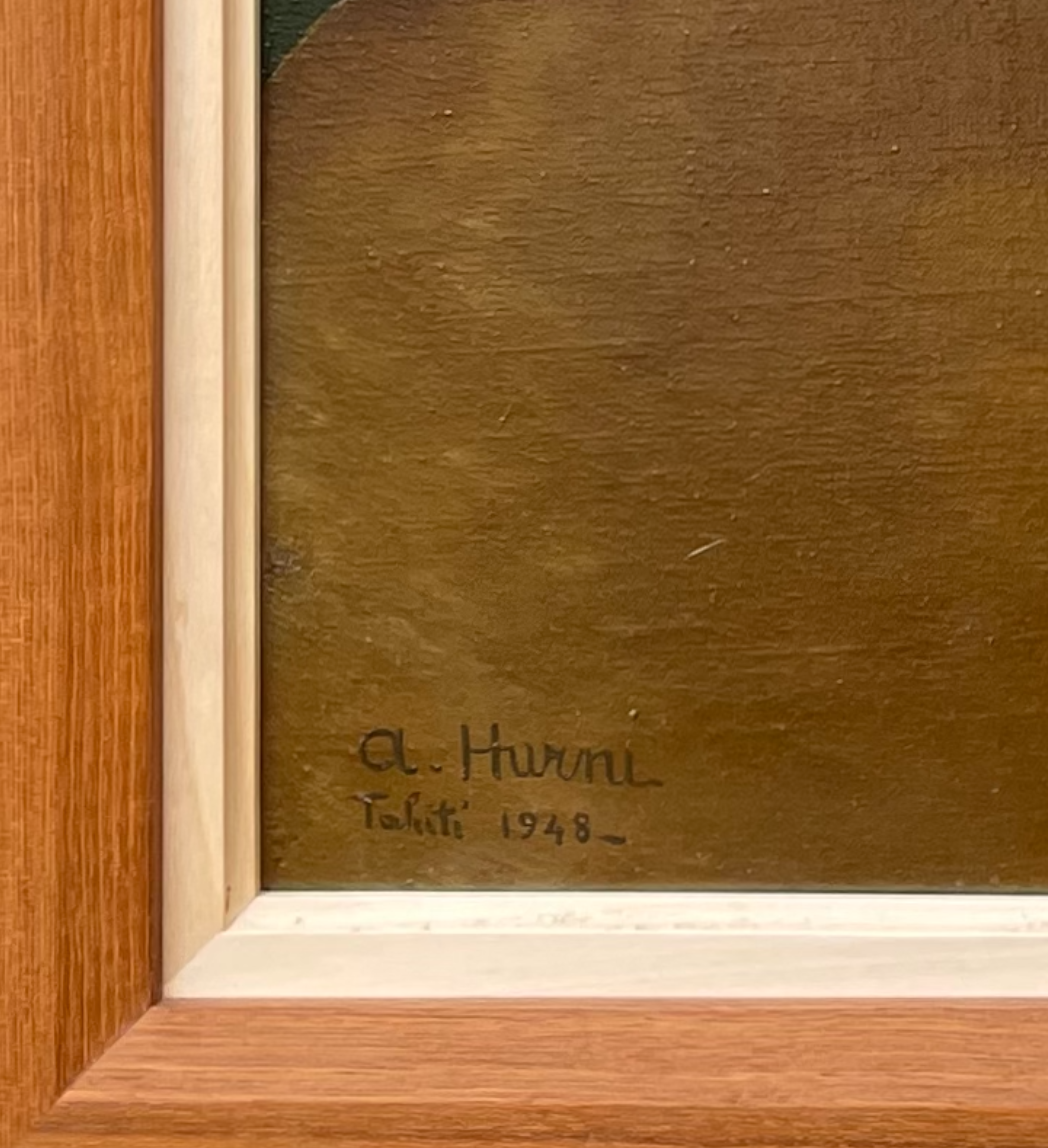 a. Hurni
Tahiti 1948